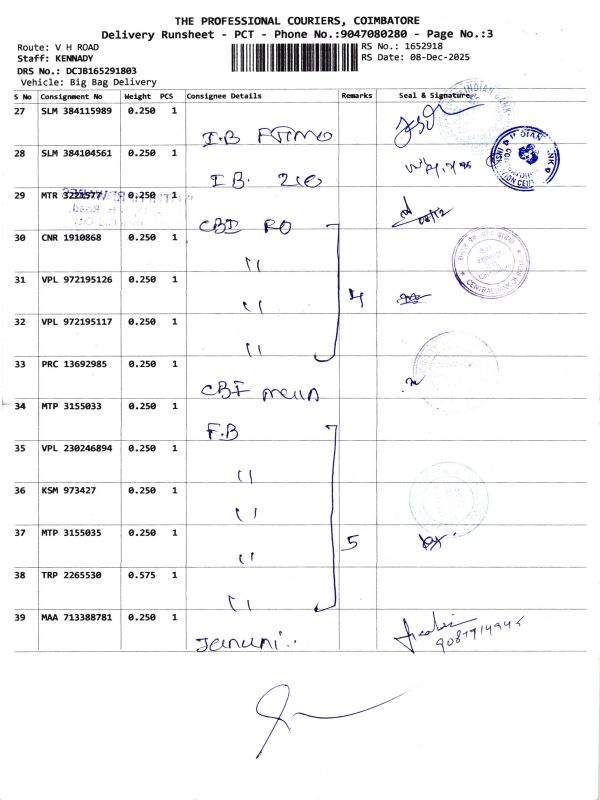 THE PROFESSIONAL COURIERS, COIMBATORE
Delivery Runsheet - PCT - Phone No.:9047080280 - Page No.:3
Route: V H ROAD
RS No.: 1652918
Staff: KENNADY
RS Date: 08-Dec-2025
DRS No.: DCJB165291803
Vehicle: Big Bag Delivery
S No Consignment No Weight PCS Consignee Details Remarks Seal & Signature
27 SLM 384115989 0.250 1
I.B
28 SLM 384104561 0.250 1
I.B. 210
29 MTR 3221577 0.250 1
CBI RO
08/12
30 CNR 1910868 0.250 1
"
31 VPL 972195126 0.250 1
" 4
32 VPL 972195117 0.250 1
"
33 PRC 13692985 0.250 1
CBI main
34 MTP 3155033 0.250 1
F.B
35 VPL 230246894 0.250 1
"
36 KSM 973427 0.250 1
"
37 MTP 3155035 0.250 1
" 5
38 TRP 2265530 0.575 1
"
39 MAA 713388781 0.250 1
Janani..
INDIAN BANK
CENTRAL BANK OF INDIA